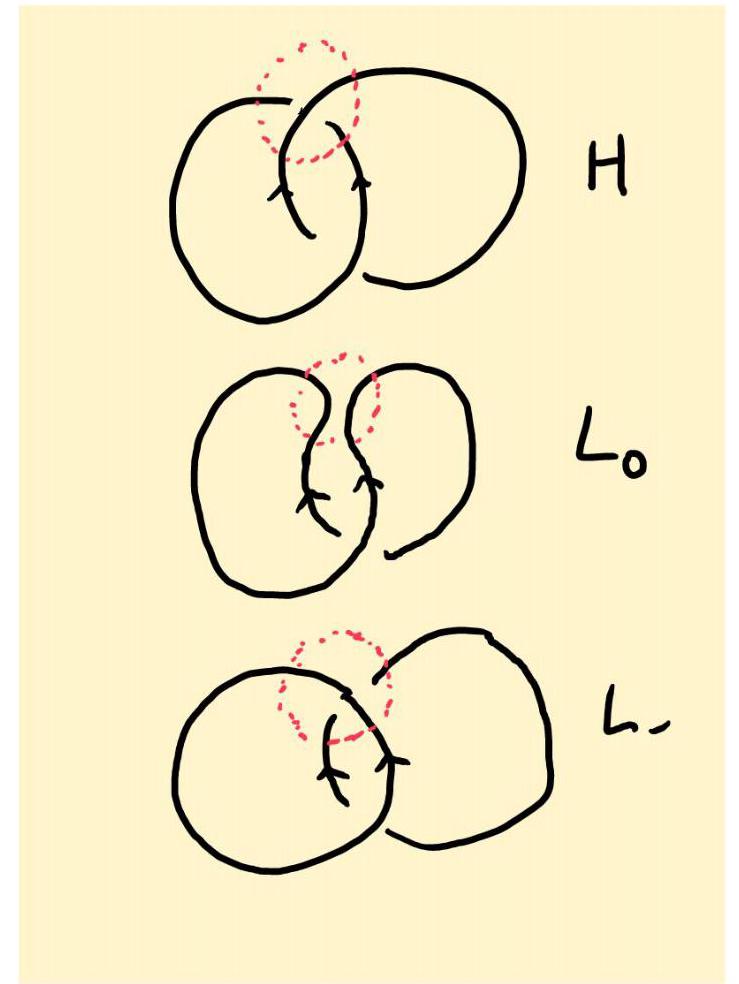 H
L₀
L₋